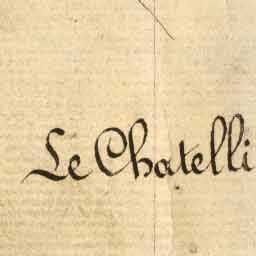 Le Chatelli